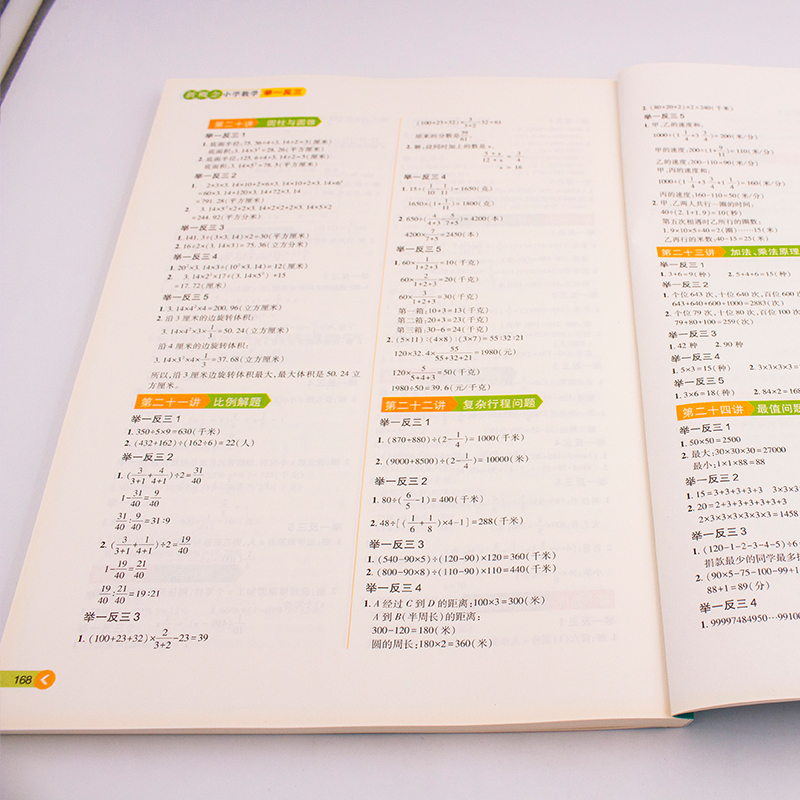 新概念 小学数学 举一反三
第二十讲 圆柱与圆锥
举一反三1
1. 底面半径:75.36÷4÷3.14÷2=3(厘米)
底面面积:3.14×3²=28.26(平方厘米)
2. 底面半径:125.6÷4÷3.14÷2=5(厘米)
底面面积:3.14×5²=78.5(平方厘米)
举一反三2
=60×3.14+120×3.14+72×3.14
=791.28(平方厘米)
=244.92(平方分米)
举一反三3
1. 141.3÷(3×3.14)×2=30(平方厘米)
2. 16÷2×(3.14×3)=75.36(立方分米)
举一反三4
=17.72(厘米)
举一反三5
1. 3.14×4²×4=200.96(立方厘米)
2. 沿3厘米的边旋转体积:
3.14×4²×3×1/3=50.24(立方厘米)
沿4厘米的边旋转体积:
3.14×3²×4×1/3=37.68(立方厘米)
所以,沿3厘米边旋转体积最大,最大体积是50.24立
方厘米。
第二十一讲 比例解题
举一反三1
1. 350÷5×9=630(千米)
2. (432+162)÷(162÷6)=22(人)
举一反三2
1. (3/(3+1)+4/(4+1))÷2=31/40
1-31/40=9/40
31/40:9/40=31:9
2. (3/(3+1)+1/(4+1))÷2=19/40
1-19/40=21/40
19/40:21/40=19:21
举一反三3
1. (100+23+32)×2/(3+2)-23=39
168
(100+23+32)×3/(3+2)-32=61
原来的分数是39/61
2. 解:设同时加上的数是x。
x = 16
举一反三4
1. 15÷(1/10-1/11)=1650(克)
1650×(1+1/10)=1800(克)
2. 650÷(4/(4+3)-5/(7+5))=4200(本)
4200×7/(7+5)=2450(本)
举一反三5
1. 60×1/(1+2+3)=10(千克)
60×2/(1+2+3)=20(千克)
60×3/(1+2+3)=30(千克)
第一箱:10+3=13(千克)
第二箱:20+3=23(千克)
第三箱:30-6=24(千克)
2. (5×11):(4×8):(3×7)=55:32:21
120×32.4×55/(55+32+21)=1980(元)
120×5/(5+4+3)=50(千克)
1980÷50=39.6(元/千克)
第二十二讲 复杂行程问题
举一反三1
1. (870+880)÷(2-1/4)=1000(千米)
2. (9000+8500)÷(2-1/4)=10000(米)
举一反三2
1. 80÷(6/5-1)=400(千米)
2. 48÷[(1/6+1/8)×4-1]=288(千米)
举一反三3
1. (540-90×5)÷(120-90)×120=360(千米)
2. (800-90×8)÷(110-90)×110=440(千米)
举一反三4
1. A经过C到D的距离:100×3=300(米)
A到B(半周长)的距离:
300-120=180(米)
圆的周长:180×2=360(米)
2. (80+20×2)×2=240(千米)
举一反三5
1. 甲、乙的速度和:
甲、丙的速度和:
丙的速度:160-110=50(米/分)
2. 甲、乙两人共行一圈的时间:
40÷(2.1+1.9)=10(秒)
第五次相遇时乙所行的圈数:
1.9×10×5÷40=2(圈)……15(米)
乙再行的米数:40-15=25(米)
第二十三讲 加法、乘法原理
举一反三1
1. 3+6=9(种) 2. 5+4+6=15(种)
举一反三2
1. 个位643次,十位640次,百位600
643+640+600+1000=2883(次)
2. 个位79次,十位80次,百位100
79+80+100=259(次)
举一反三3
1. 42种 2. 90种
举一反三4
1. 5×3=15(种) 2. 3×3×3×3=
举一反三5
1. 3×6=18(种) 2. 84×2=168
第二十四讲 最值问题
举一反三1
1. 50×50=2500
2. 最大:30×30×30=27000
最小:1×1×88=88
举一反三2
1. 15=3+3+3+3+3 3×3×3×
2. 20=2+3+3+3+3+3+3
2×3×3×3×3×3×3=1458
举一反三3
1. (120-1-2-3-4-5)÷6
捐款最少的同学最多
2. (90×5-75-100-99+1
88+1=89(分)
举一反三4
1. 99997484950…99100